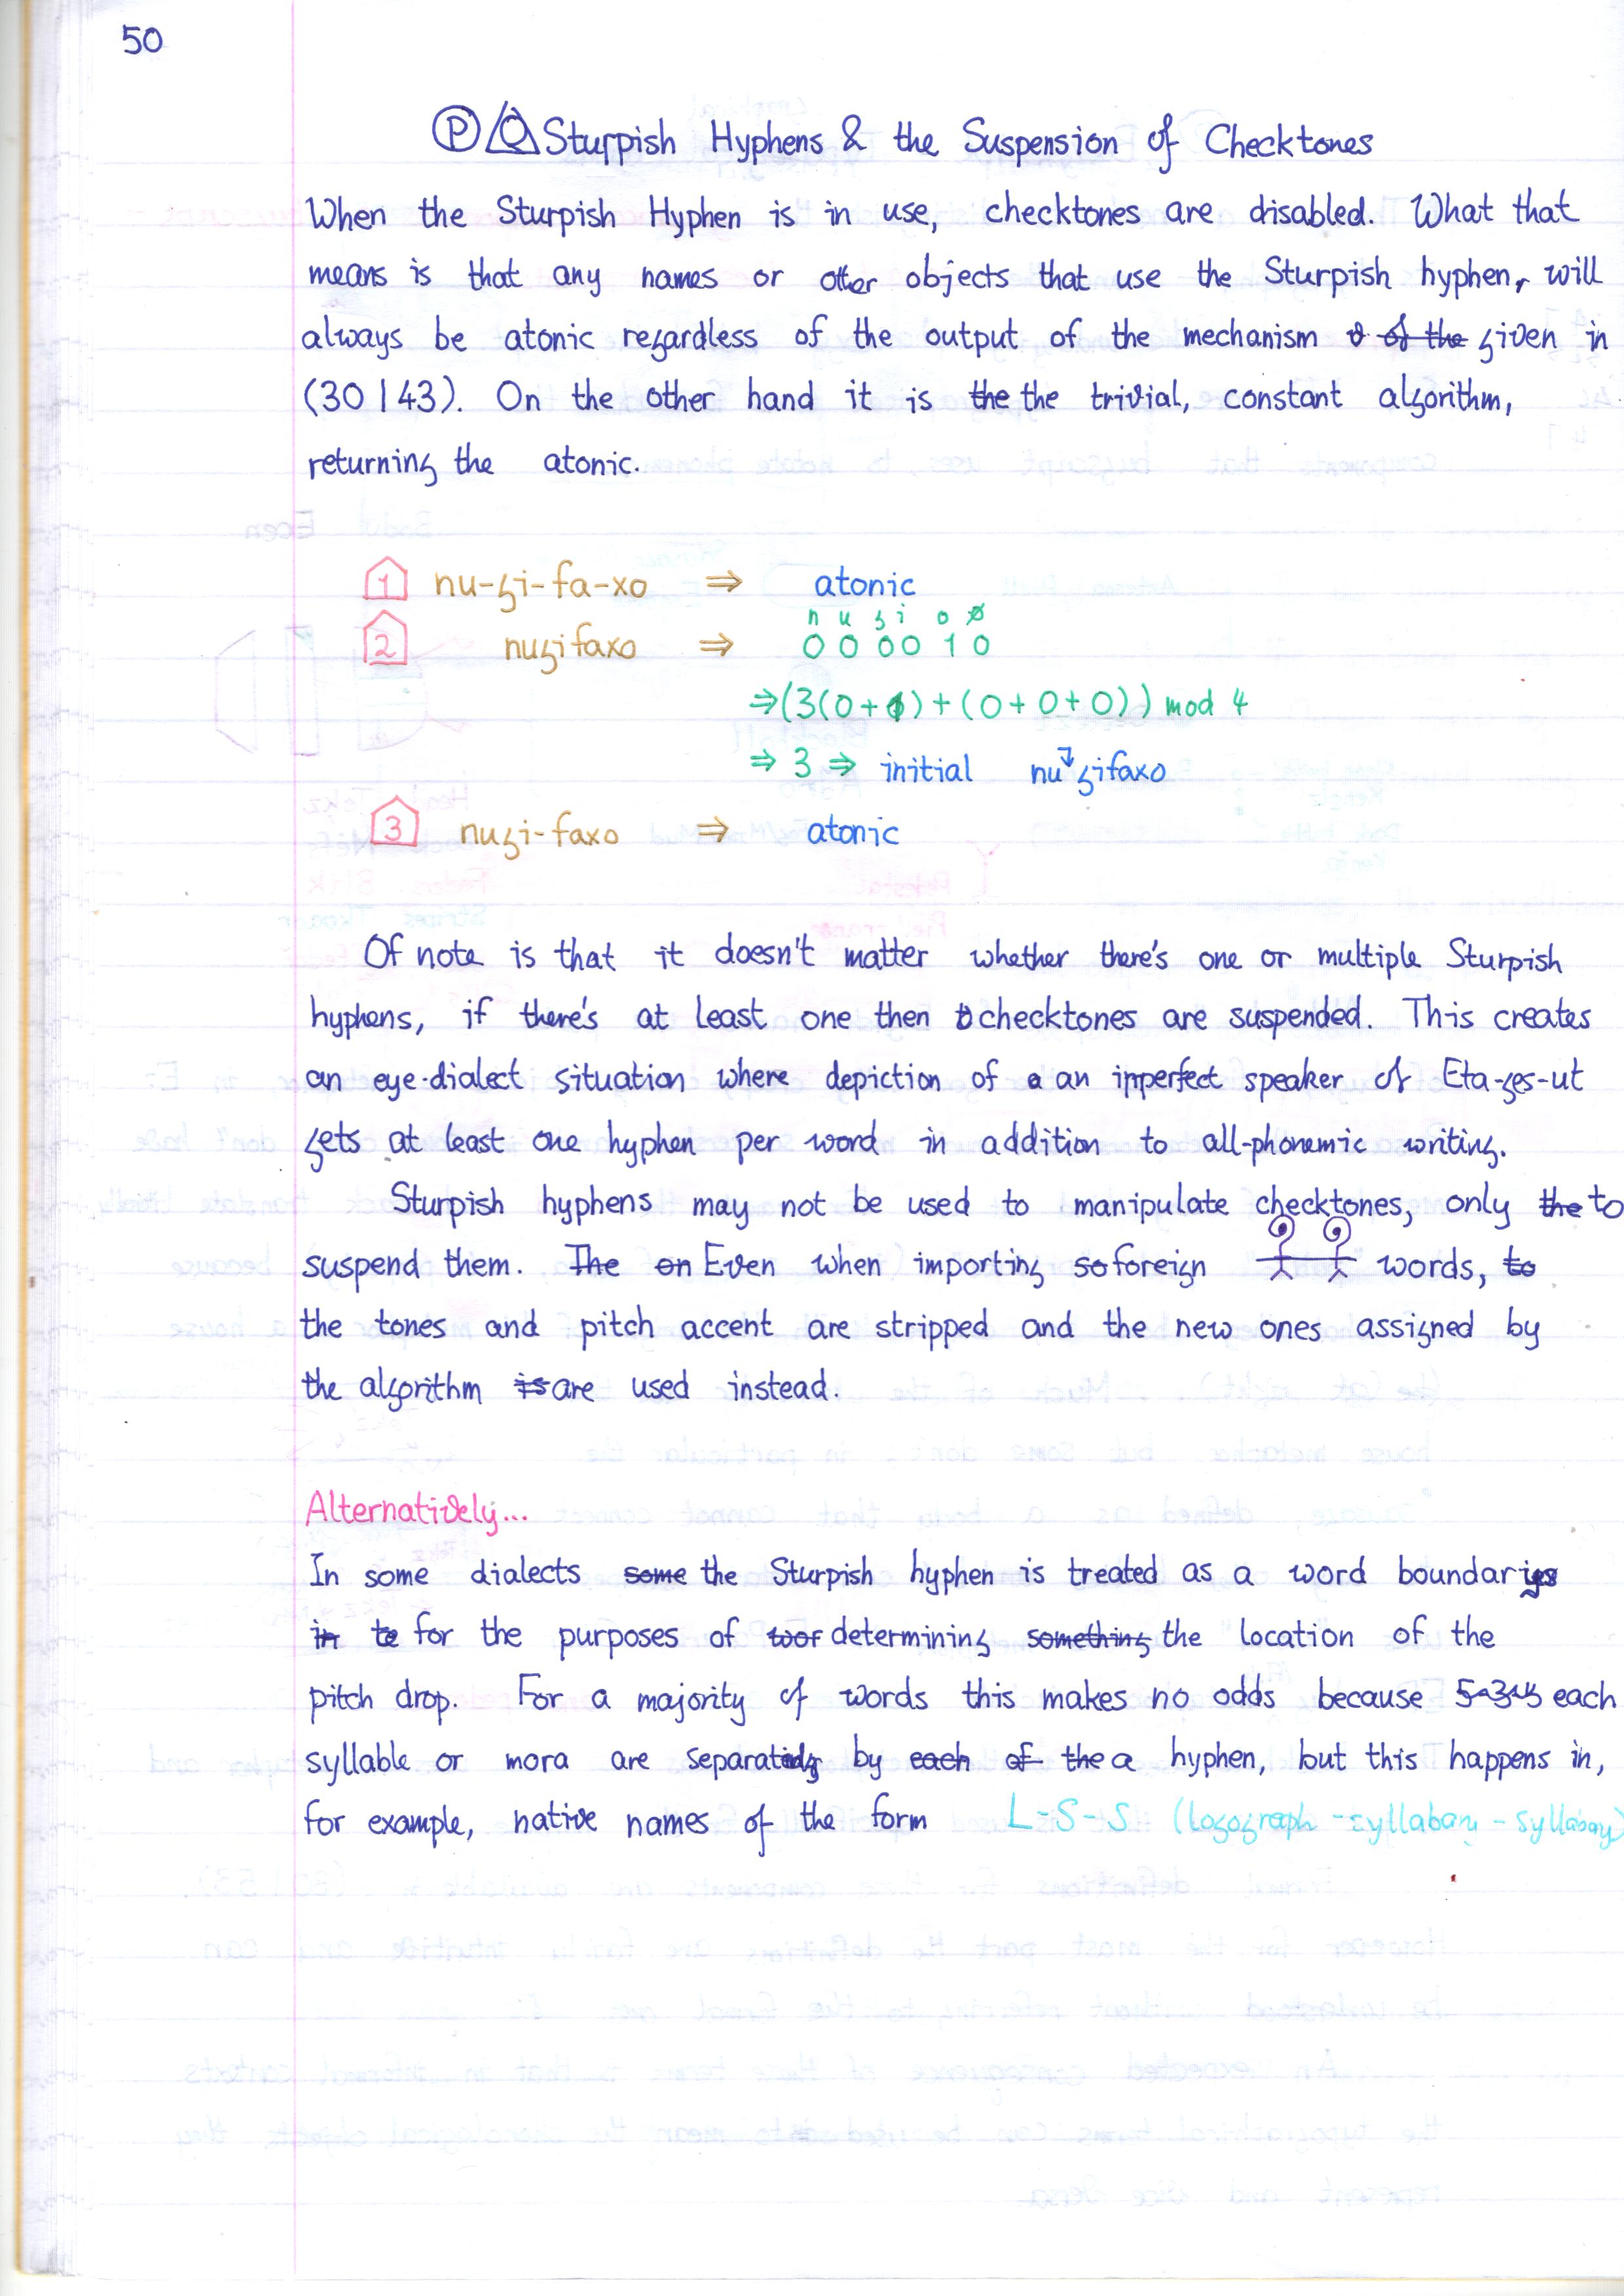 50
Ⓟ Q Sturpish Hyphens & the Suspension of Checktones
When the Sturpish Hyphen is in use, checktones are disabled. What that
means is that any names or other objects that use the Sturpish hyphen, will
always be atonic regardless of the output of the mechanism of the given in
(30|43). On the other hand it is the the trivial, constant algorithm,
returning the atonic.
1 nu-gi-fa-xo ⇒ atonic
n u g i o ø
2 nugifaxo ⇒ 0 0 0 0 1 0
⇒ (3(0+1)+(0+0+0)) mod 4
⇒ 3 ⇒ initial nu↴gifaxo
3 nugi-faxo ⇒ atonic
Of note is that it doesn't matter whether there's one or multiple Sturpish
hyphens, if there's at least one then checktones are suspended. This creates
an eye-dialect situation where depiction of a an imperfect speaker of Eta-ges-ut
gets at least one hyphen per word in addition to all-phonemic writing.
Sturpish hyphens may not be used to manipulate checktones, only the to
suspend them. The on Even when importing so foreign words, to
the tones and pitch accent are stripped and the new ones assigned by
the algorithm is are used instead.
Alternatively...
In some dialects some the Sturpish hyphen is treated as a word boundary
in te for the purposes of wor determining something the location of the
pitch drop. For a majority of words this makes no odds because each
syllable or mora are separated by each of the a hyphen, but this happens in,
for example, native names of the form L-S-S (logograph-syllabary-syllabary)